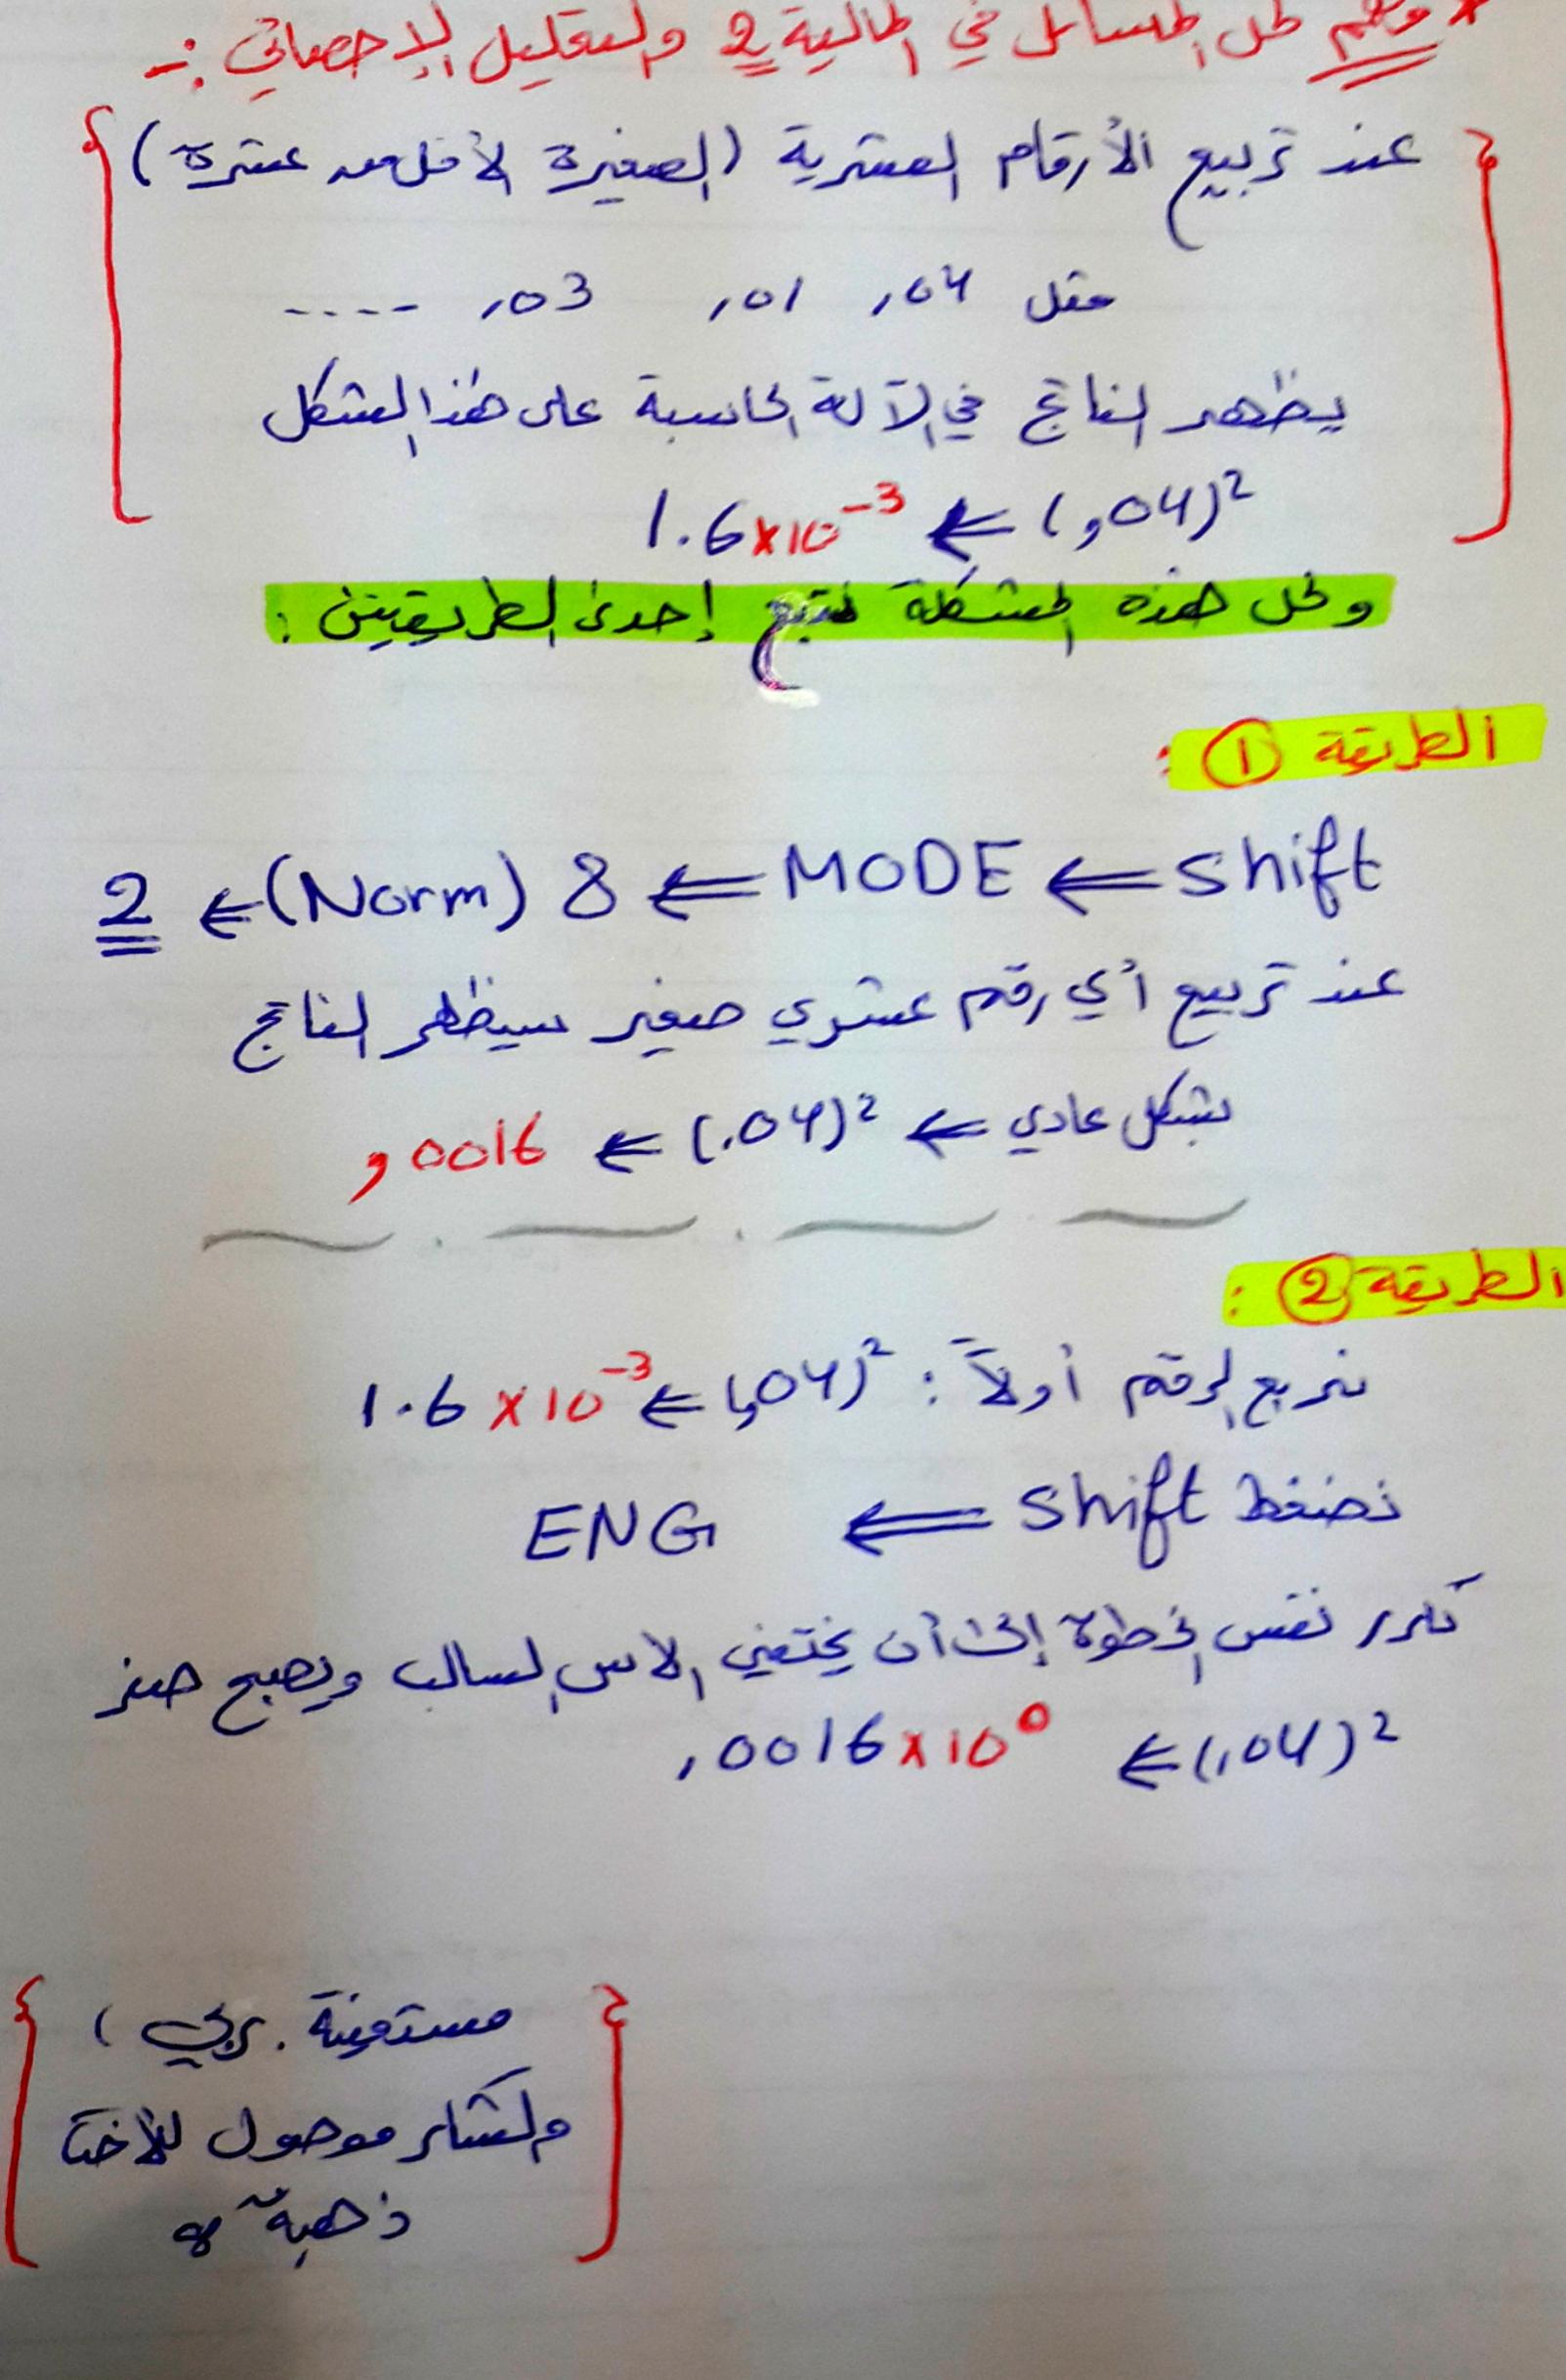 * مهم لحل المسائل في المالية 2 والتحليل الإحصائي :-
عند تربيع الأرقام العشرية (الصغيرة الأقل من عشرة)
مثل ,04 ,01 ,03 ....
يظهر الناتج في الآلة الحاسبة على هذا الشكل
(,04)² ⇐ 1.6×10⁻³
ولحل هذه المشكلة نتبع إحدى الطريقتين :
الطريقة ① :
Shift ⇐ MODE ⇐ 8 (Norm) ← 2
عند تربيع أي رقم عشري صغير سيظهر الناتج
بشكل عادي ← (.04)² ⇐ ,0016
الطريقة ② :
نربع الرقم أولاً : (,04)² ⇐ 1.6 × 10⁻³
نضغط Shift ⇐ ENG
نكرر نفس الخطوة إلى أن يختفي الأس السالب ويصبح صفر
(,04)² ⇐ ,0016×10⁰
مستعينة بربي ،
والشكر موصول للأخت
ذهبة